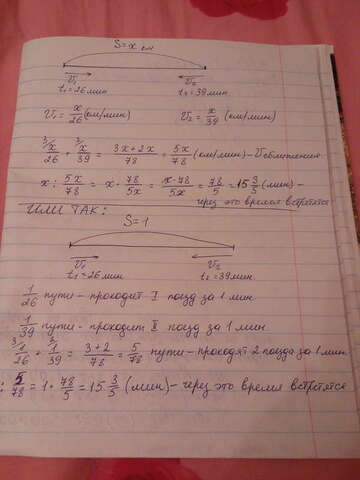 S = x км
V₁ V₂
t₁ = 26 мин t₂ = 39 мин
V₁ = x/26 (км/мин) V₂ = x/39 (км/мин)
3 2
x/26 + x/39 = (3x + 2x)/78 = 5x/78 (км/мин) - V сближения
x : 5x/78 = x · 78/5x = x·78/5x = 78/5 = 15 3/5 (мин) -
через это время встретятся
ИЛИ ТАК:
S = 1
V₁ V₂
t₁ = 26 мин t₂ = 39 мин
1/26 пути - проходит I поезд за 1 мин
1/39 пути - проходит II поезд за 1 мин
3 2
1/26 + 1/39 = (3+2)/78 = 5/78 пути - проходят 2 поезда за 1 мин.
: 5/78 = 1 · 78/5 = 15 3/5 (мин) - через это время встретятся